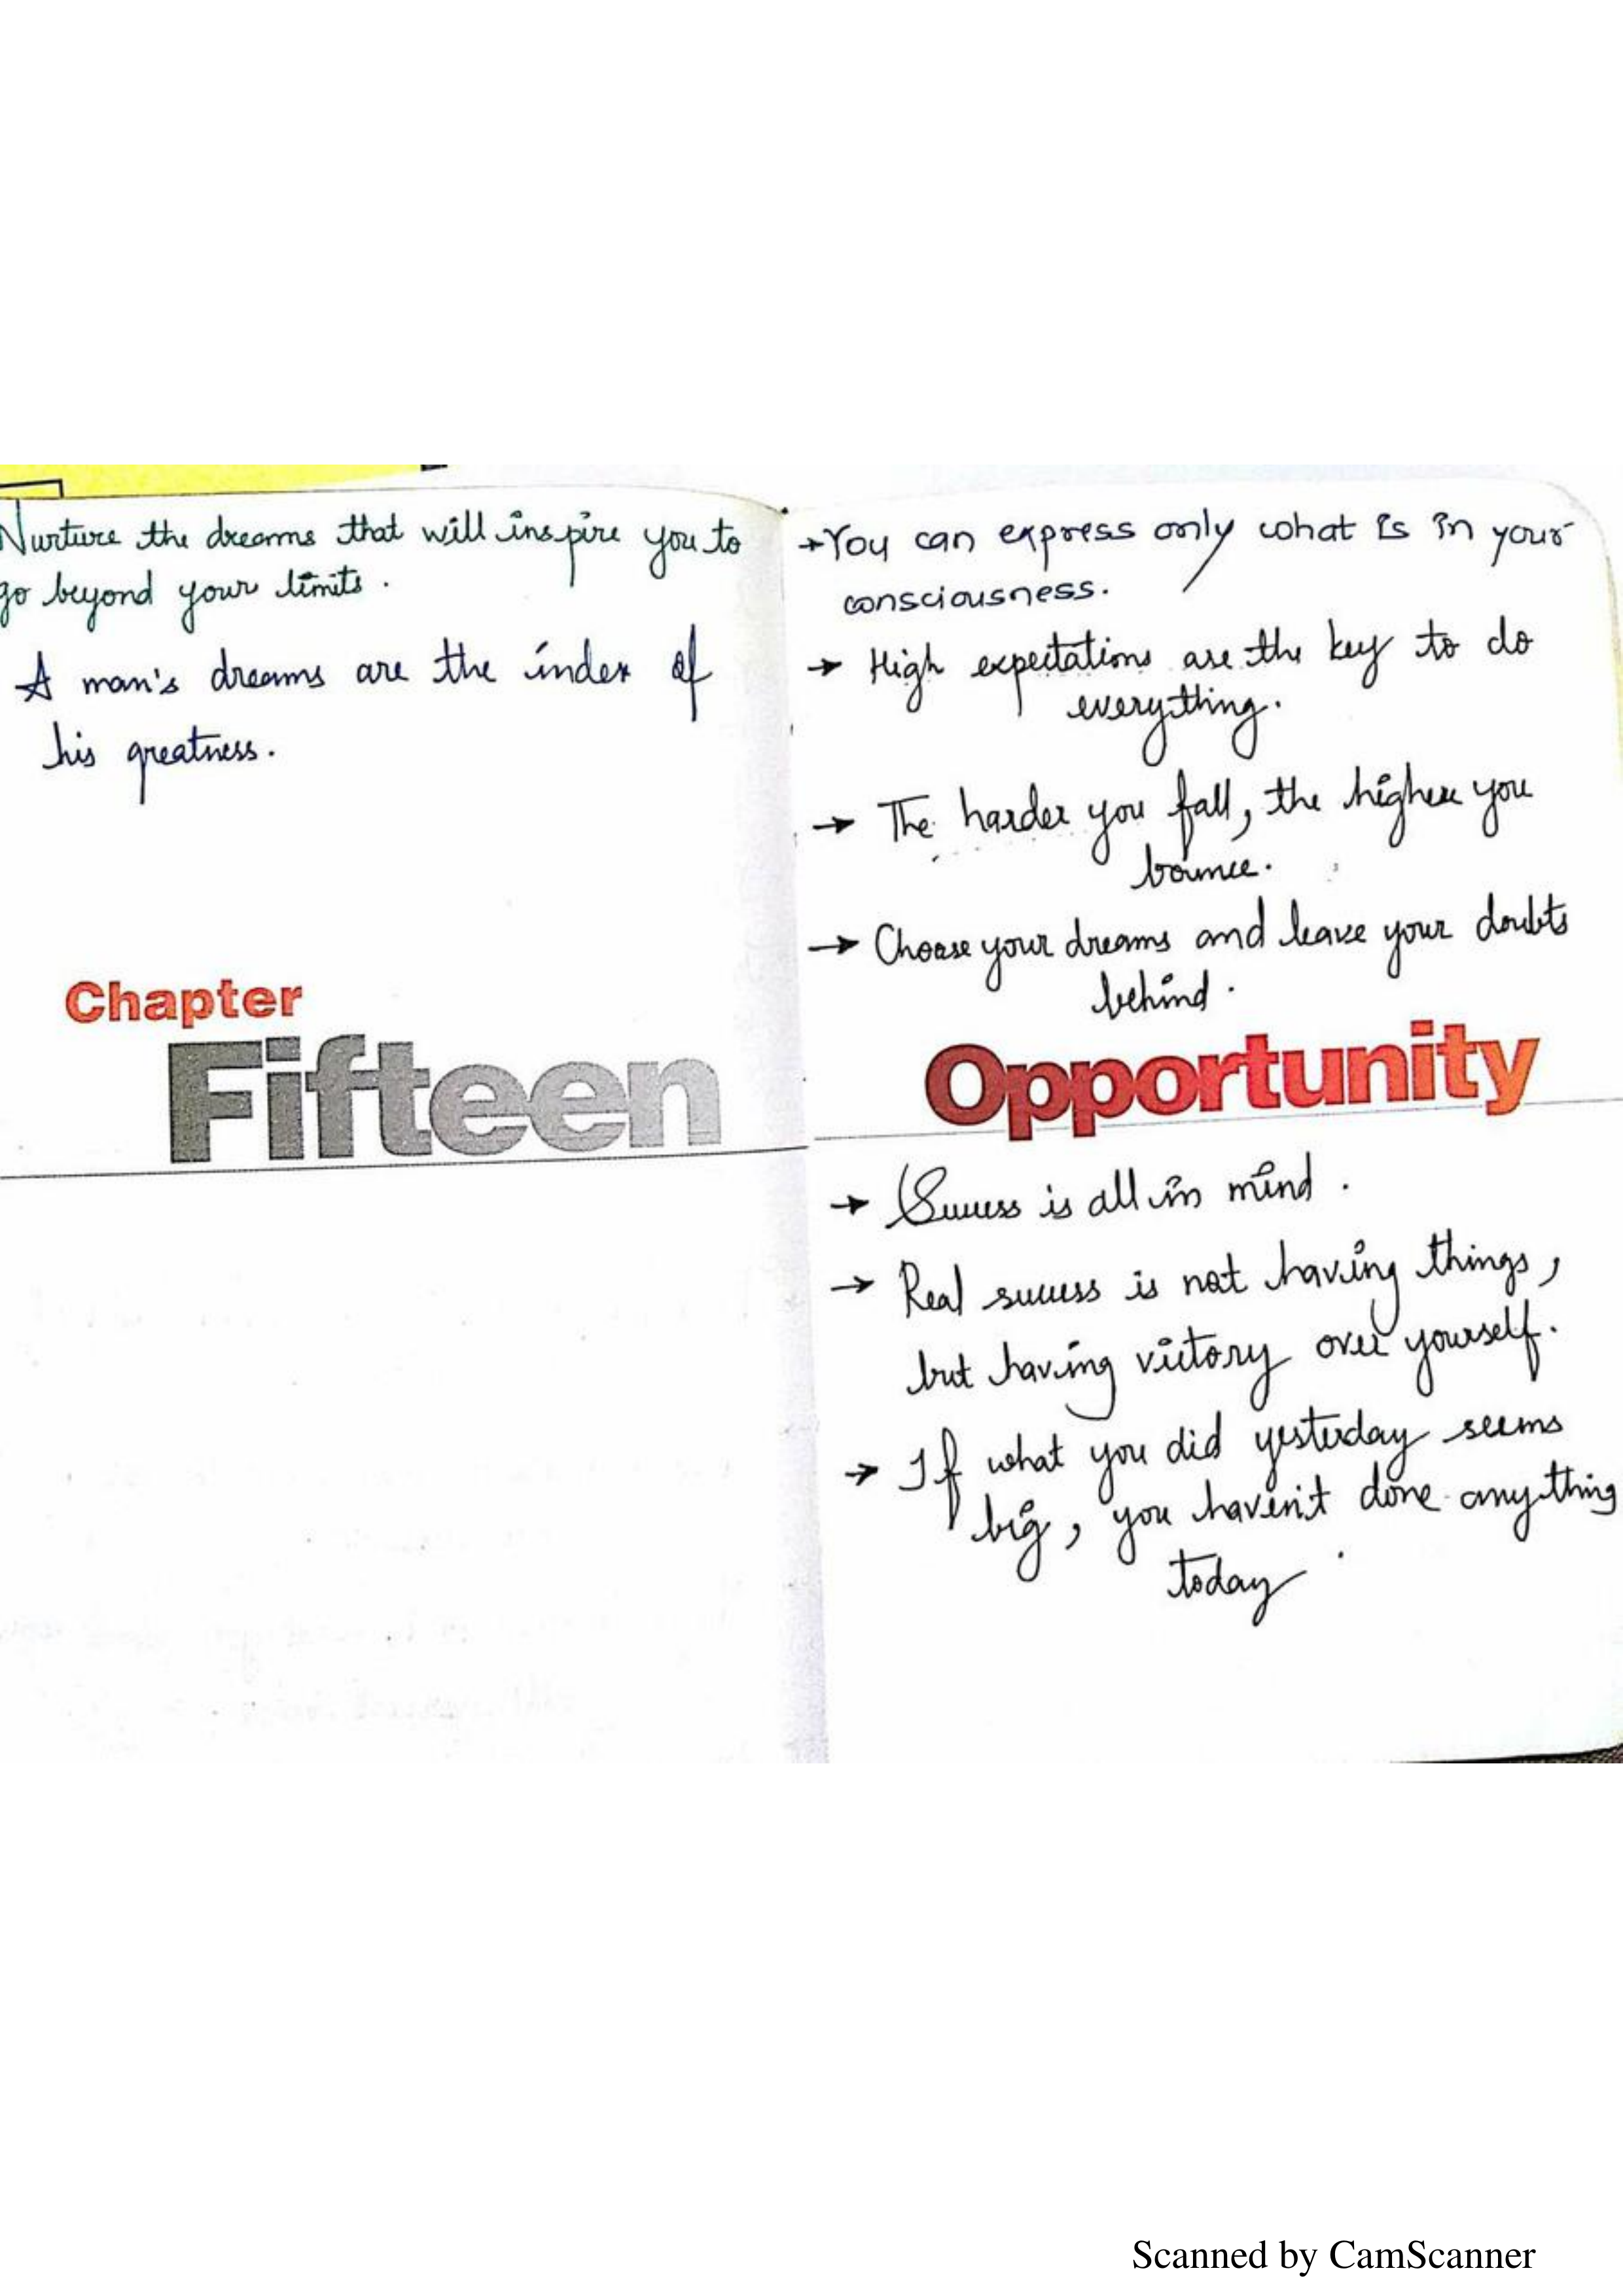 Nurture the dreams that will inspire you to
go beyond your limits.
A man's dreams are the index of
his greatness.
Chapter
Fifteen
→ You can express only what is in your
consciousness.
→ High expectations are the key to do
everything.
→ The harder you fall, the higher you
bounce.
→ Choose your dreams and leave your doubts
behind.
Opportunity
→ Success is all in mind.
→ Real success is not having things,
but having victory over yourself.
→ If what you did yesterday seems
big, you haven't done anything
today.
Scanned by CamScanner